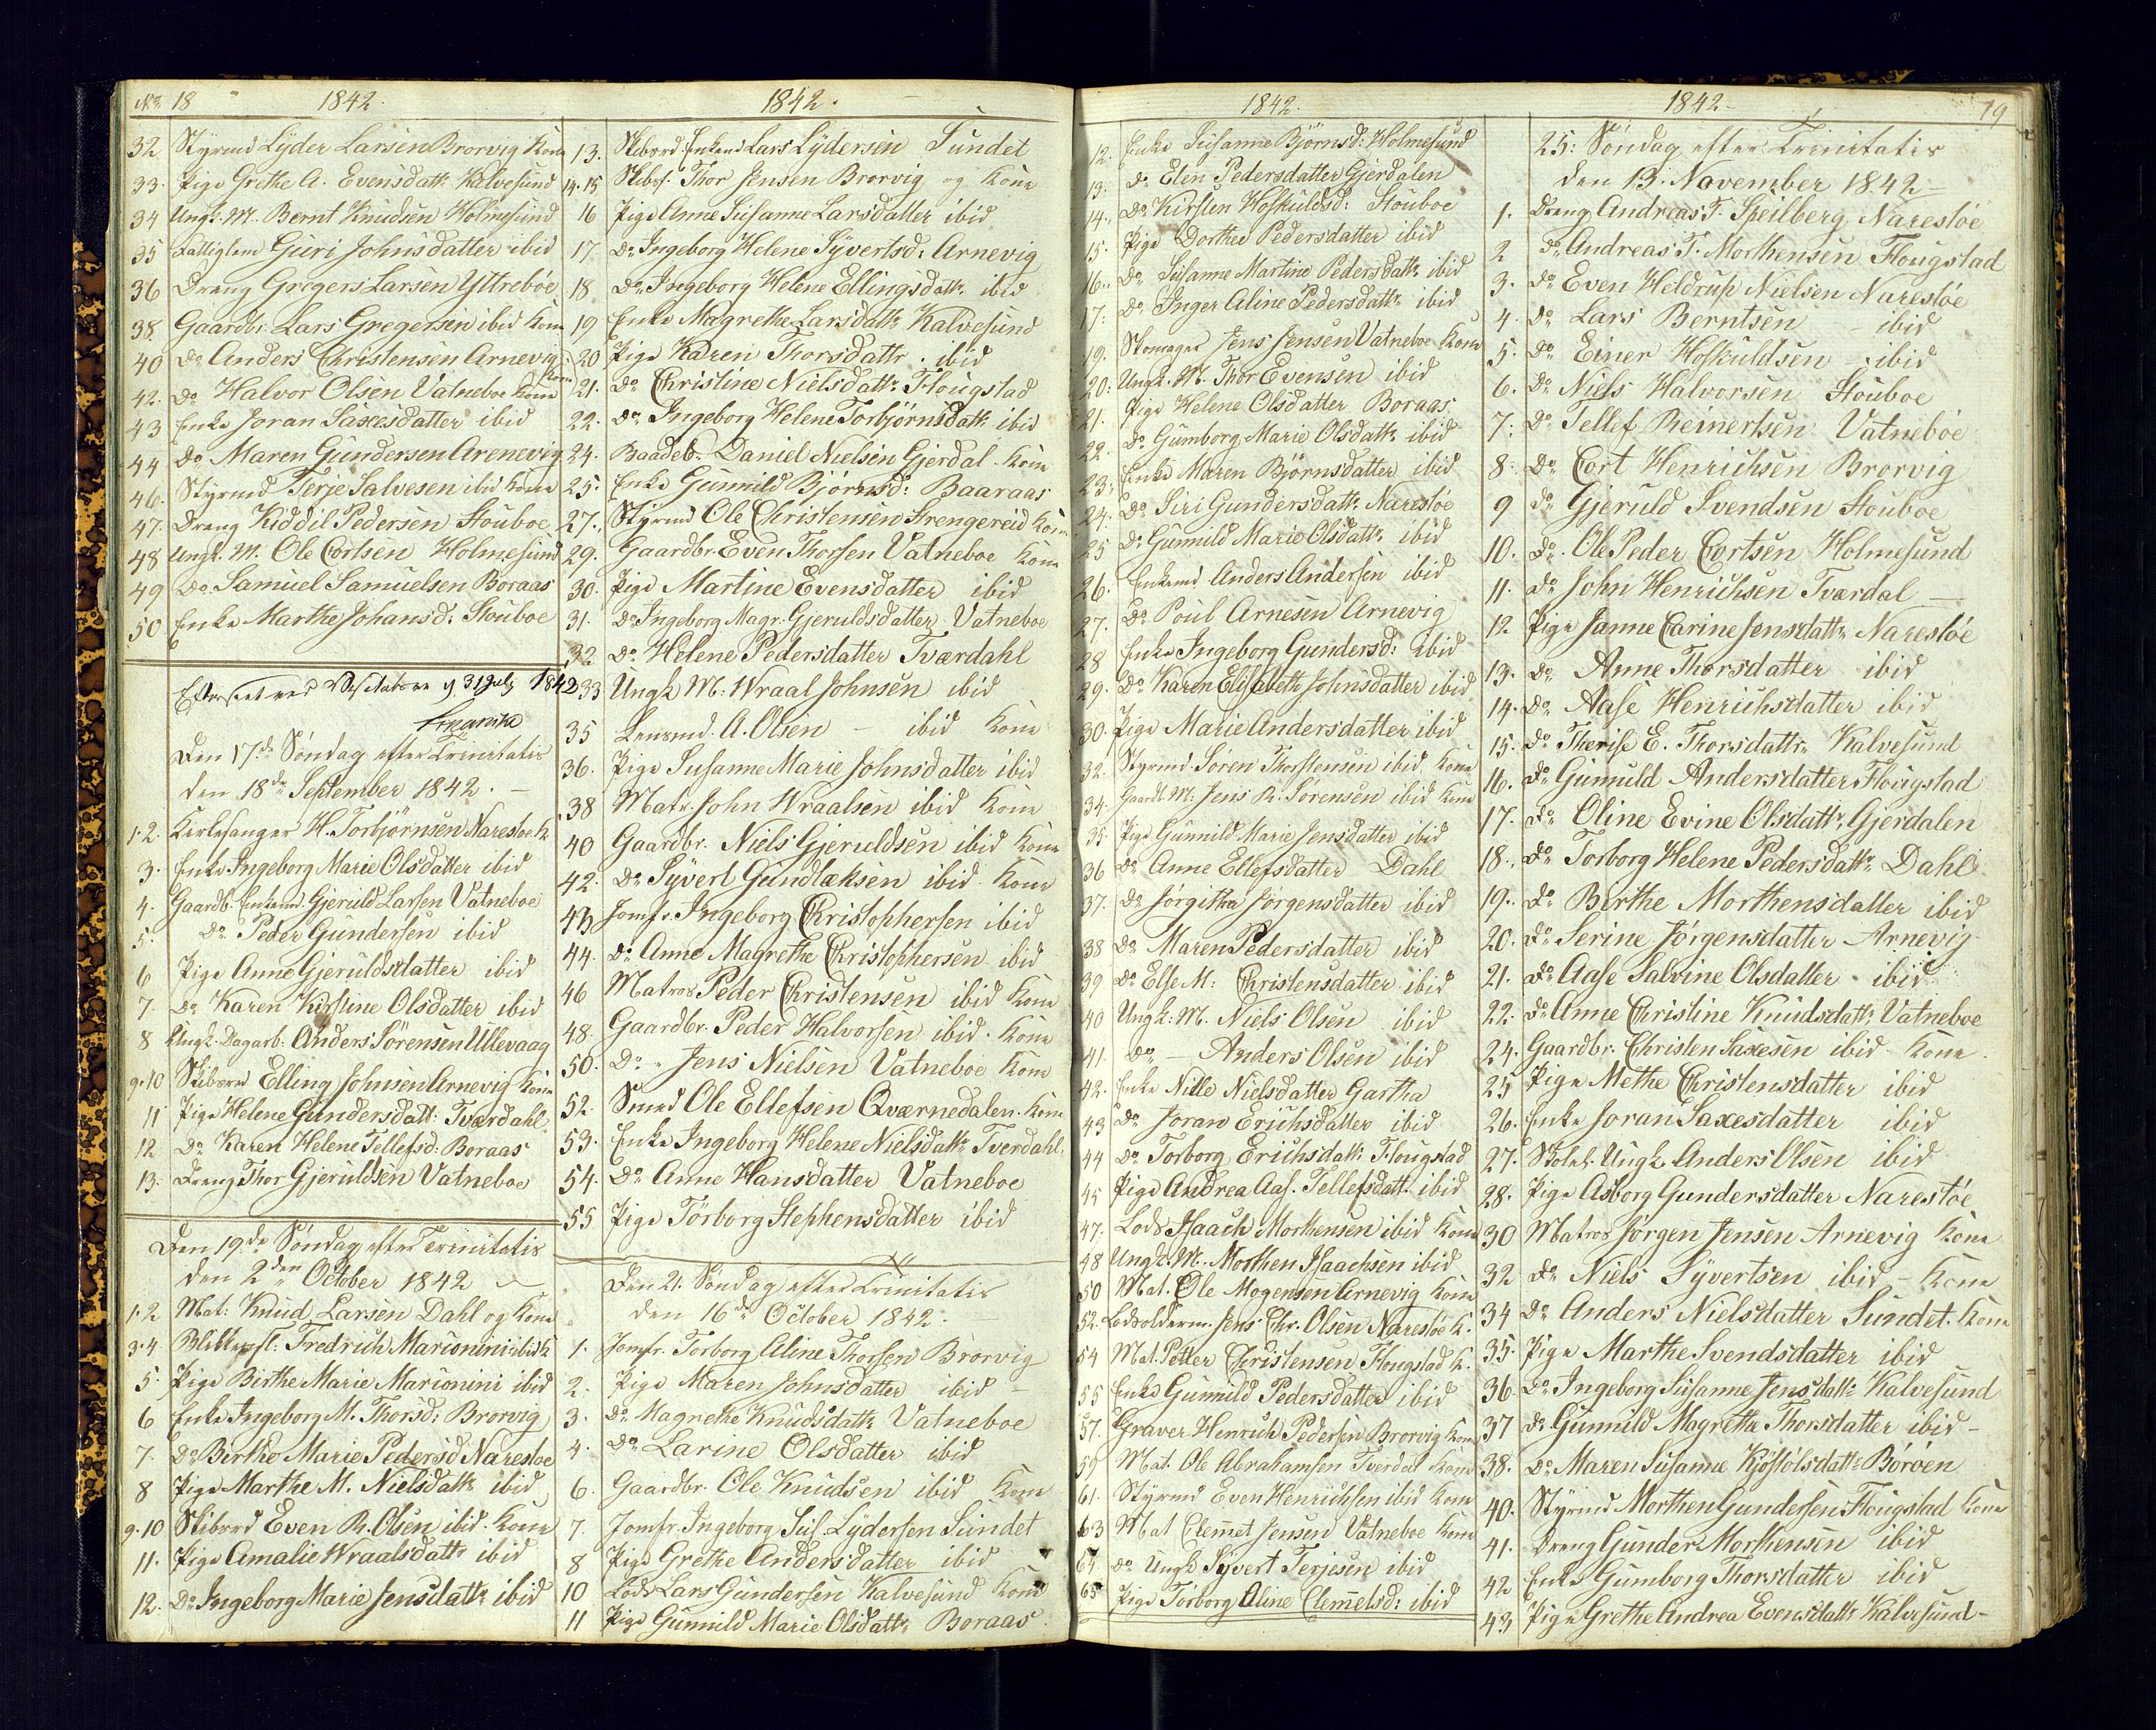 No 18 1842.
32 Styrmd Lyder Larsen Brorvig Kone
33. Pige Grethe A. Evensdatt. Kalvesund
34 Ungk. M. Bernt Knudsen Holmesund
35 Fattiglem Guri Johnsdatter ibid
36 Dreng Gregers Larsen Yttrebøe
38. Gaardbr. Lars Gregersen ibid Kone
40 Do Anders Christensen Arnevig Kone
42. Do Halvor Olsen Vatneboe Kone
43 Enke Joran Saxesdatter ibid
44 Do Maren Gundersen Arenevig
46. Styrmd Terje Salvesen ibid Kone
47. Dreng Kiddil Pedersen Stouboe
48 Ungk. M. Ole Cortsen Holmesund
49 Do Samuel Samuelsen Boraas
50 Enke Marthe Johansd: Stouboe
Efterseet ved Visitatsen d 31 July 1842
Den 17de Søndag efter Trinitatis
den 18de September 1842. –
1.2. Kirkesanger H. Torbjörnsen Narestoe K
3. Enke Ingeborg Marie Olsdatter ibid
4. Gaardb. Enkem. Gjeruld Larsen Vatneboe
5. Do Peder Gundersen ibid
6 Pige Anne Gjeruldsdatter ibid
7. Do Karen Kirstine Olsdatter ibid
8 Ungk. Dagarb. Anders Sörensen Ullevaag
9.10 Skibsrd Elling Johnsen Arnevig Kone
11 Pige Helene Gundersdatt: Tværdahl
12 Do Karen Helene Tellefsd: Boraas
13. Dreng Thor Gjeruldsen Vatneboe
Den 19de Søndag efter Trinitatis
den 2den October 1842
1.2 Mat: Knud Larsen Dahl og Kone
3.4 Fredrich Marionini ibid K
5. Pige Birthe Marie Marionini ibid
6 Enke Ingeborg M. Thorsd: Brorvig
7. Do Birthe Marie Pedersd Narestoe
8 Pige Marthe M. Nielsdatt. ibid
9.10 Skibsrd Even R. Olsen ibid. Kone
11. Pige Amalie Wraalsdatt. ibid
12. Do Ingeborg Marie Jensdatt. ibid
1842.
13. Skibsrd. Enkemd Lars Lydersen Sundet
14.15 Skibsf. Thor Jensen Brorvig og Kone
16 Pige Anne Susanne Larsdatter ibid
17. Do Ingeborg Helene Syvertsd: Arnevig
18 Do Ingeborg Helene Ellingsdatt. ibid
19 Enke Magrethe Larsdatt. Kalvesund
20 Pige Karen Thorsdattr. ibid
21. Do Christine Nielsdatt. Flougstad
22. Do Ingeborg Helene Torbjörnsdatt. ibid
24. Baadeb. Daniel Nielsen Gjerdal Kone
25. Enke Gunnild Björnsd: Baaraas
27. Styrmd Ole Christensen Strengereid Kone
29. Gaardbr. Even Thorsen Vatneboe Kone
30. Pige Martine Evensdatter ibid
31. Do Ingeborg Magr. Gjeruldsdatter Vatneboe
32 Do Helene Pedersdatter Tværdahl
33 Ungk M: Wraal Johnsen ibid
35 Lensmd. A. Olsen – ibid Kone
36. Pige Susanne Marie Johnsdatter ibid
38 Matr. John Wraalsen ibid Kone
40 Gaardbr. Niels Gjeruldsen ibid Kone
42. Do Syvert Gundlaksen ibid Kone
43 Jomfr. Ingeborg Christophersen ibid
44. Do Anne Magrethe Christophersen ibid
46 Matros Peder Christensen ibid Kone
48. Gaardbr. Peder Halvorsen ibid. Kone
50. Do Jens Nielsen Vatneboe Kone
52. Smed Ole Ellefsen Qværnedalen. Kone
53. Enke Ingeborg Helene Nielsdatt. Tverdahl.
54. Do Anne Hansdatter Vatneboe
55 Pige Törborg Stephensdatter ibid
Den 21. Søndag efter Trinitatis
den 16de October 1842.
1. Jomfr. Torborg Aline Thorsen Brorvig
2. Pige Maren Johnsdatter ibid –
3. Do Magrethe Knudsdatt. Vatneboe
4. Do Larine Olsdatter ibid
6. Gaardbr. Ole Knudsen ibid Kone
7. Jomfr. Ingeborg Sus. Lydersen Sundet
8 Pige Grethe Andersdatter ibid
10 Lods Lars Gundersen Kalvesund Kone
11 Pige Gunnild Marie Olsdatt. Boraas
1842.
12. Enke Susanne Björnsd: Holmesund
13. Do Elen Pedersdatter Gjerdalen
14. Do Kirsten Hofkuldsd: Stouboe
15. Pige Dorthea Pedersdatter ibid
16. Do Susanne Martine Pedersdatt. ibid
17. Do Inger Aline Pedersdatt. ibid
19. Skomager Jens Jensen Vatneboe Kone
20. Ungk. M. Thor Evensen ibid
21. Pige Helene Olsdatter Boraas
22. Do Gumborg Marie Olsdatt. ibid
23. Enke Maren Björnsdatter ibid
24. Do Siri Gundersdatt. Narestöe
25 Do Gunnild Marie Olsdatt. ibid
26. Enkemd Anders Andersen ibid
27. Do Poul Arnesen Arnevig
28 Enke Ingeborg Gundersd: ibid
29. Do Karen Elisabeth Johnsdatter ibid
30. Pige Marie Andersdatter ibid
32. Styrmd. Sören Thorstensen ibid Kone
34. Gaardb. M: Jens R. Sörensen ibid Kone
35. Pige Gunnild Marie Jensdatter ibid
36 Do Anne Ellefsdatter Dahl
37. Do Jörgitha Jörgensdatter ibid
38 Do Maren Pedersdatter ibid
39 Do Else M: Christensdatter ibid
40 Ungk: M. Niels Olsen ibid
41. Do – Anders Olsen ibid
42. Enke Nille Nielsdatter Gartha
43 Do Joran Erichsdatter ibid
44 Do Torborg Erichsdatt. Flougstad
45 Pige Andrea Aas. Tellefsdatt. ibid
47. Lods Isaach Morthensen ibid Kone
48 Ungk. M. Morthen Isaachsen ibid
50 Mat. Ole Mogensen Arnevig Kone
52. Lodsolderm. Jens Chr. Olsen Narestöe K.
54 Mat. Petter Christensen Flougstad K.
55 Enke Gunnild Pedersdatter ibid
57. Graver Henrich Pedersen Brorvig Kone
59 Mat. Ole Abrahamsen Tverdal Kone
61. Styrmd Even Henrichsen ibid Kone
63 Mat Clemet Jensen Vatneboe Kone
64 Do Ungk Syvert Terjesen ibid
65 Pige Törborg Oline Clemetsd: ibid
1842 19
25: Søndag efter Trinitatis
den 13. November 1842 –
1. Dreng Andreas T. Speilberg Narestöe
2 Do Andreas T. Morthensen Flougstad
3. Do Even Heldrup Nielsen Narestöe
4. Do Lars Berntsen – ibid
5. Do Einer Hofkuldsen – ibid
6. Do Niels Halvorsen Stouboe
7. Do Tellef Reinertsen Vatneböe
8. Do Cort Henrichsen Brorvig
9 Do Gjeruld Svendsen Stouboe
10. Do. Ole Peder Cortsen Holmesund
11. Do John Henrichsen Tværdal –
12 Pige Janne Carine Jensdatt. Narestöe
13. Do Anne Thorsdatter ibid
14. Do Aase Henrichsdatter ibid
15. Do Therise E. Thorsdattr. Kalvesund
16. Do Gunnuld Andersdatter Flougstad
17. Do Oline Evine Olsdatt. Gjerdalen
18. Do Torborg Helene Pedersdatt. Dahl
19. Do Birthe Morthensdatter ibid
20. Do Serine Jörgensdatter Arnevig
21. Do Aase Salvine Olsdatter ibid
22. Do Anne Christine Knudsdatt. Vatneboe
24. Gaardbr. Christen Saxesen ibid Kone
25 Pige Methe Christensdatter ibid
26. Enke Joran Saxesdatter ibid
27. Ungk Anders Olsen ibid
28. Pige Asborg Gundersdatter Narestöe
30 Matros Jörgen Jensen Arnevig Kone
32 Do Niels Syvertsen ibid – Kone
34 Do Anders Nielsdatter Sundet. Kone
35. Pige Marthe Svendsdatter ibid
36. Do Ingeborg Susanne Jensdatt. Kalvesund
37 Do Gunnild Magretha Thorsdatter ibid –
38. Do Maren Susanne Kjöstölsdatt. Böröen
40. Styrmd Morthen Gundersen Flougstad Kone
41. Dreng Gunder Morthensen ibid
42 Enke Gumborg Thorsdatter ibid
43 Pige Grethe Andrea Evensdatt. Kalvesund –